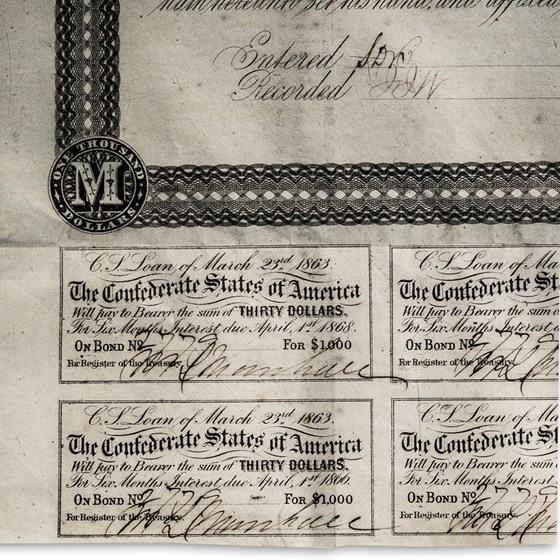 hath hereunto set his hand, and affixed
Entered
Recorded
ONE THOUSAND
M
DOLLARS
C. S. Loan of March 23rd 1863.
The Confederate States of America
Will pay to Bearer the sum of THIRTY DOLLARS.
For Six Months Interest due April, 1st 1868.
ON BOND No
FOR $1,000
For Register of the Treasury.
C. S. Loan of Ma
The Confederate St
Will pay to Bearer the sum of
For Six Months Interest
ON BOND No
For Register of the Treasury.
C. S. Loan of March 23rd 1863.
The Confederate States of America
Will pay to Bearer the sum of THIRTY DOLLARS.
For Six Months Interest due April, 1st 1866.
ON BOND No
FOR $1,000
For Register of the Treasury.
C. S. Loan of Ma
The Confederate St
Will pay to Bearer the sum of
For Six Months Interest
ON BOND No
For Register of the Treasury.